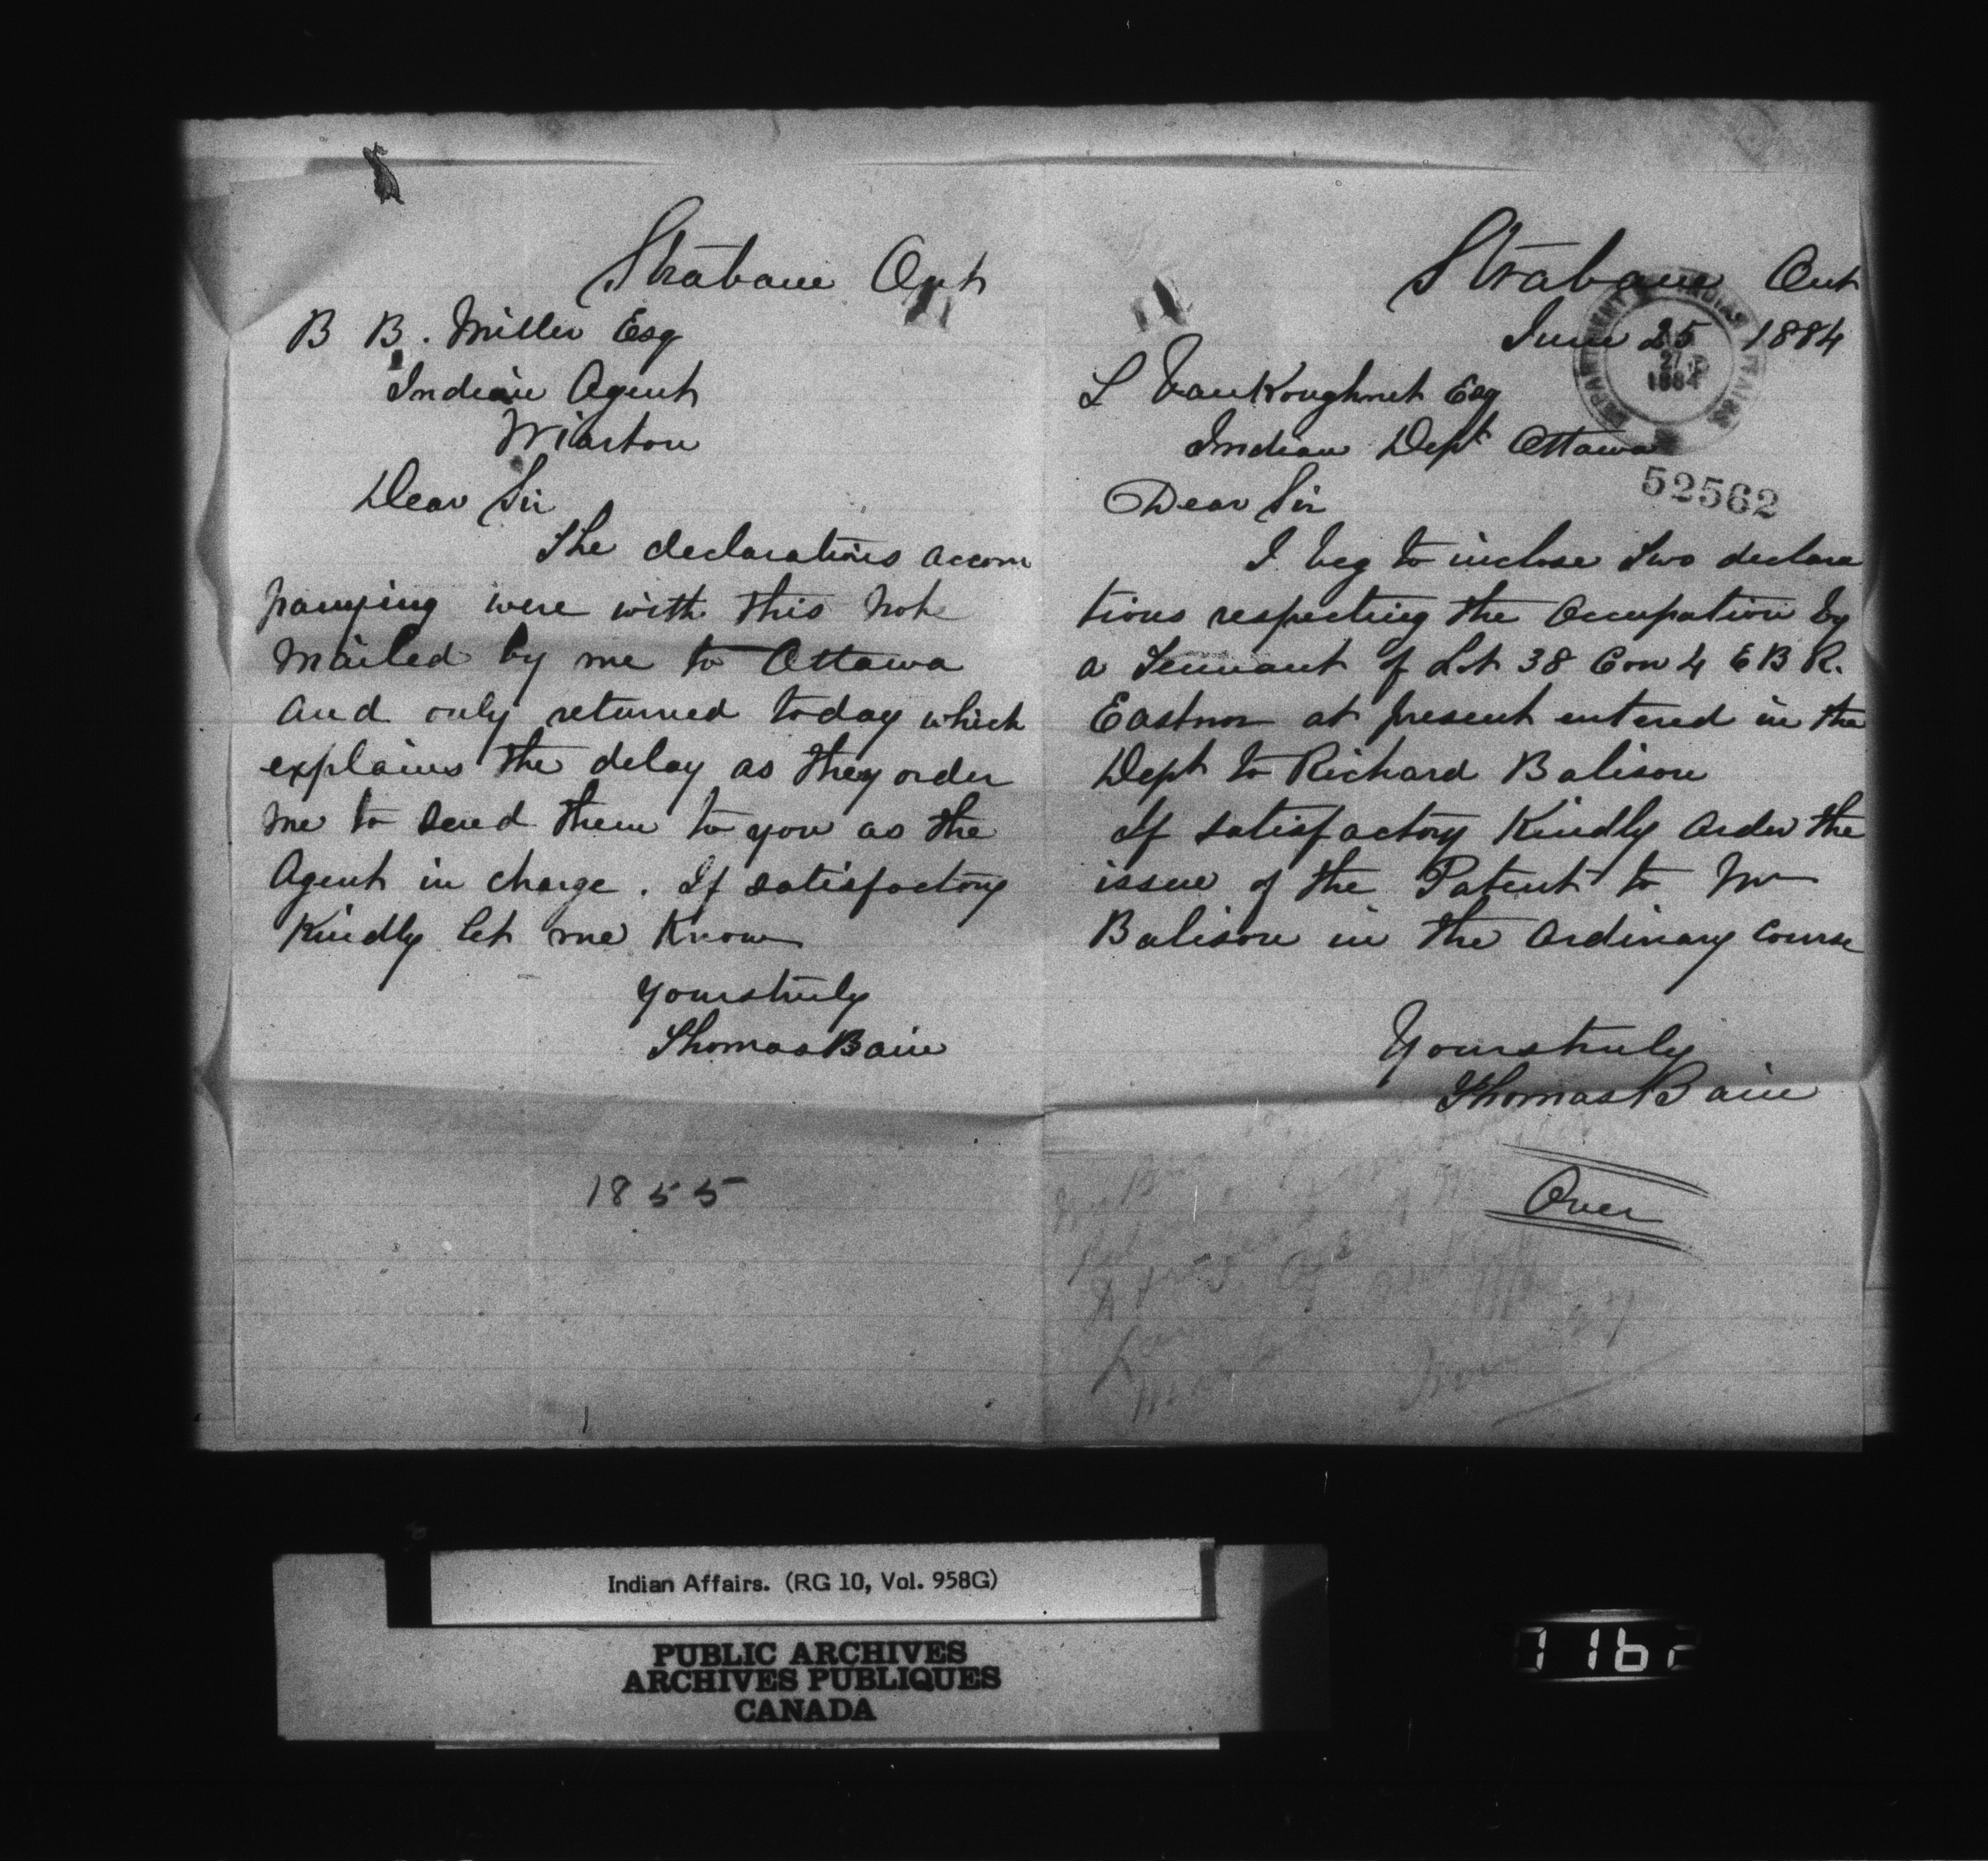 Strabane Ont
B B. Miller Esq
Indian Agent
Wiarton
Dear Sir
The declarations accom
panying were with this note
mailed by me to Ottawa
and only returned today which
explains the delay as they order
me to send them to you as the
Agent in charge. If satisfactory
Kindly let me Know
Yours truly
Thomas Bain
1855
Strabane Ont
June 25 1884
L VanKoughnet Esq
Indian Dept Ottawa
DEPARTMENT OF INDIAN AFFAIRS
27
1884
52562
Dear Sir
I beg to inclose Two declara
tions respecting the Occupation by
a Tennant of Lot 38 Con 4 E B R.
Eastnor at present entered in the
Dept to Richard Balison
If satisfactory Kindly order the
issue of the Patent to Mr
Balison in the Ordinary Course
Yours truly
Thomas Bain
Over
Indian Affairs. (RG 10, Vol. 958G)
PUBLIC ARCHIVES
ARCHIVES PUBLIQUES
CANADA